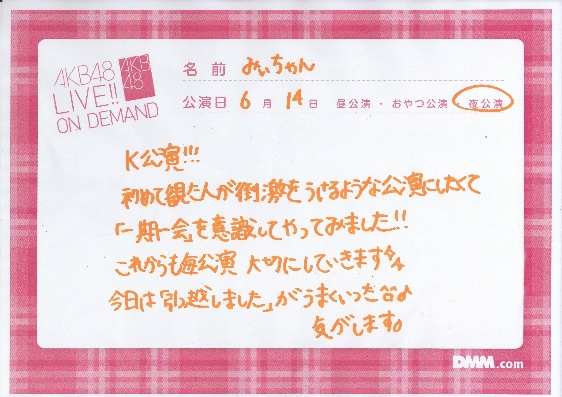 AKB48
LIVE!!
ON DEMAND
AKB
48
名前 みぃちゃん
公演日 6月14日 昼公演・おやつ公演・夜公演
K公演!!!
初めて観た人が刺激をうけるような公演にしたくて
「一期一会」を意識してやってみました!!
これからも毎公演 大切にしていきます
今日は「引越しました」がうまくいった^^♪
気がします。
DMM.com